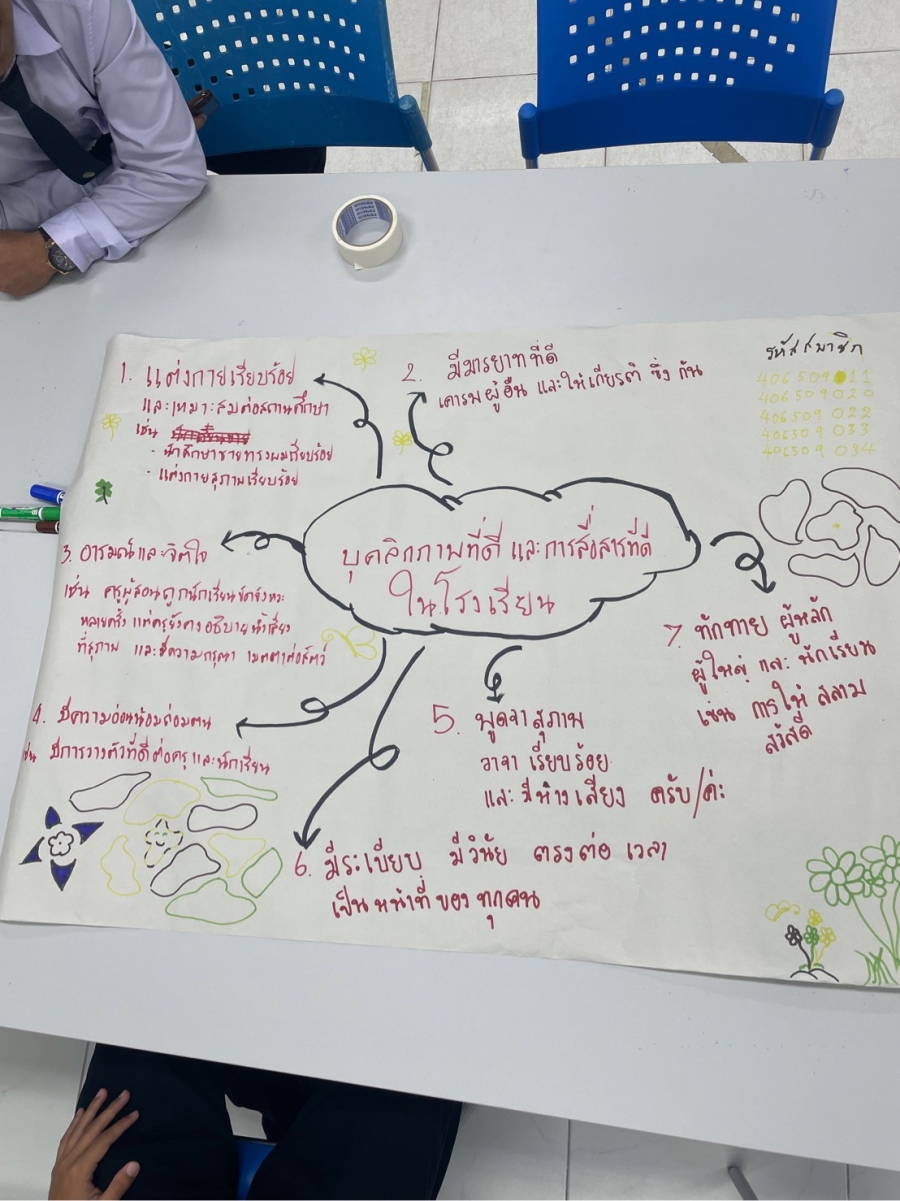 1. แต่งกายเรียบร้อย
และเหมาะสมต่อสถานศึกษา
เช่น
- นักศึกษาชายทรงผมเรียบร้อย
- แต่งกายสุภาพเรียบร้อย
2. มีมารยาทที่ดี
เคารพผู้อื่น และให้เกียรติ ซึ่ง กัน
รหัสสมาชิก
406509011
406509020
406509022
406509033
406509034
บุคลิกภาพที่ดี และการสื่อสารที่ดี
ในโรงเรียน
3. อารมณ์และจิตใจ
เช่น ครูผู้สอนถูกนักเรียนขัดจังหวะ
หลายครั้ง แต่ครูยังคงอธิบายน้ำเสียง
ที่สุภาพ และมีความกรุณา เมตตาต่อสัตว์
4. มีความอ่อนน้อมถ่อมตน
เช่น มีการวางตัวที่ดีต่อครูและนักเรียน
5. พูดจาสุภาพ
วาจา เรียบร้อย
และ มีหางเสียง ครับ/ค่ะ
6. มีระเบียบ มีวินัย ตรงต่อ เวลา
เป็นหน้าที่ของทุกคน
7. ทักทาย ผู้หลัก
ผู้ใหญ่ และ นักเรียน
เช่น การให้ สลาม
สวัสดี